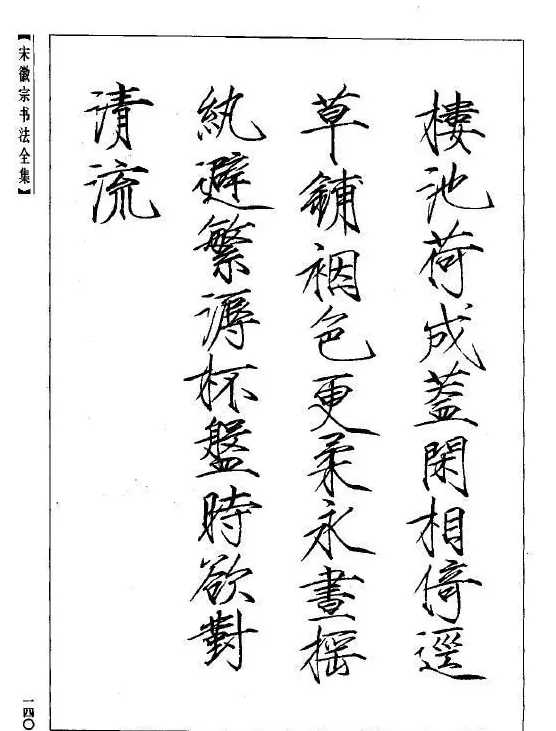 樓池荷成蓋閑相倚逕
草鋪裀色更柔永晝搖
紈避繁溽杯盤時欲對
清流
【宋徽宗书法全集】
一四〇